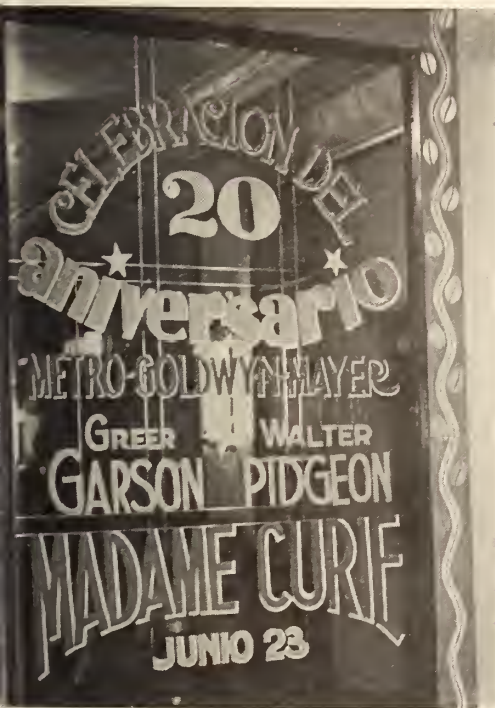 CELEBRACION DEL
20
aniversario
METRO-GOLDWYN-MAYER
GREER WALTER
GARSON PIDGEON
MADAME CURIE
JUNIO 23